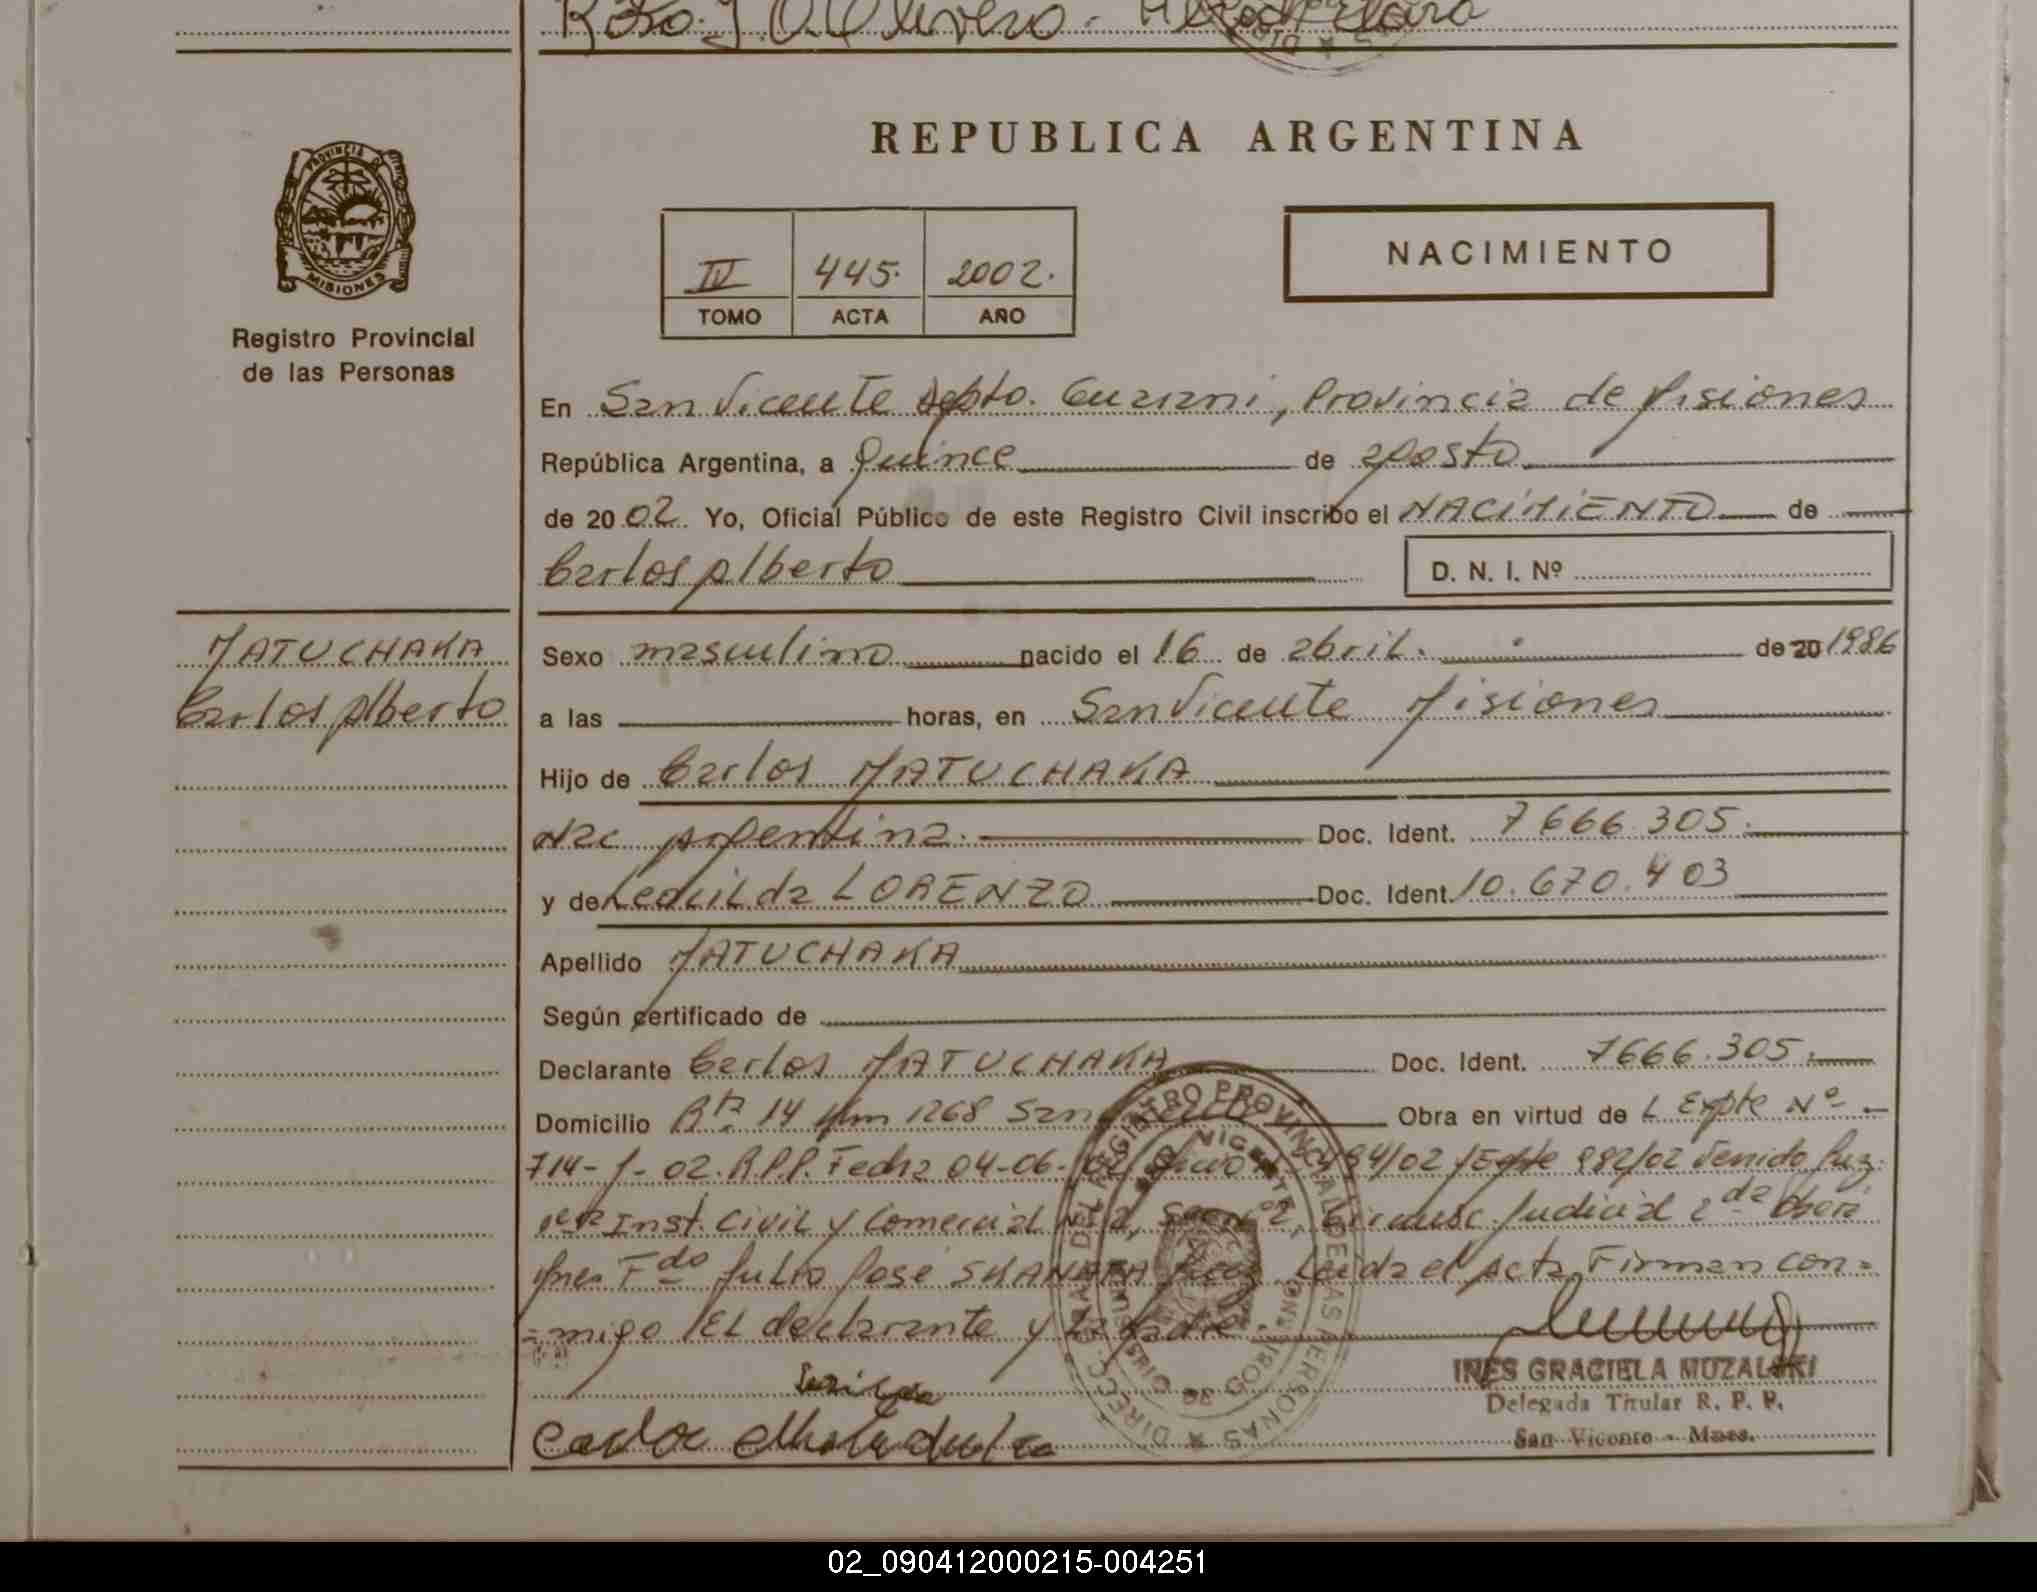 Rdo. J. O. Olivero.
REPUBLICA ARGENTINA
PROVINCIA DE
MISIONES
Registro Provincial
de las Personas
IV 445. 2002.
TOMO ACTA AÑO
NACIMIENTO
En San Vicente Depto. Guarani, Provincia de Misiones
República Argentina, a Quince de agosto
de 20 02. Yo, Oficial Público de este Registro Civil inscribo el NACIMIENTO de
Carlos Alberto D. N. I. Nº
MATUCHAKA
Carlos Alberto
Sexo masculino nacido el 16 de abril. de 20 1986
a las horas, en San Vicente Misiones
Hijo de Carlos MATUCHAKA
Nac Argentina. Doc. Ident. 7666.305.
y de Leocilda LORENZO Doc. Ident. 10.670.403
Apellido MATUCHAKA
Según certificado de
Declarante Carlos MATUCHAKA Doc. Ident. 7666.305.
Domicilio Rta. 14 Km 1268 San Obra en virtud de L Expte Nº
714-M-02. R.P.P. Fecha 04-06- /02 /Expte 982/02 Venido Juz.
Inst. Civil y Comercial Judicial 2da
Mnes Fdo Julio José Leida el Acta Firman con=
=migo El declarante y la madre.
INES GRACIELA MUZALSKI
Delegada Titular R. P. P.
San Vicente - Mnes.
DIRECC. GRAL. DEL REGISTRO PROVINCIAL DE LAS PERSONAS
02_090412000215-004251